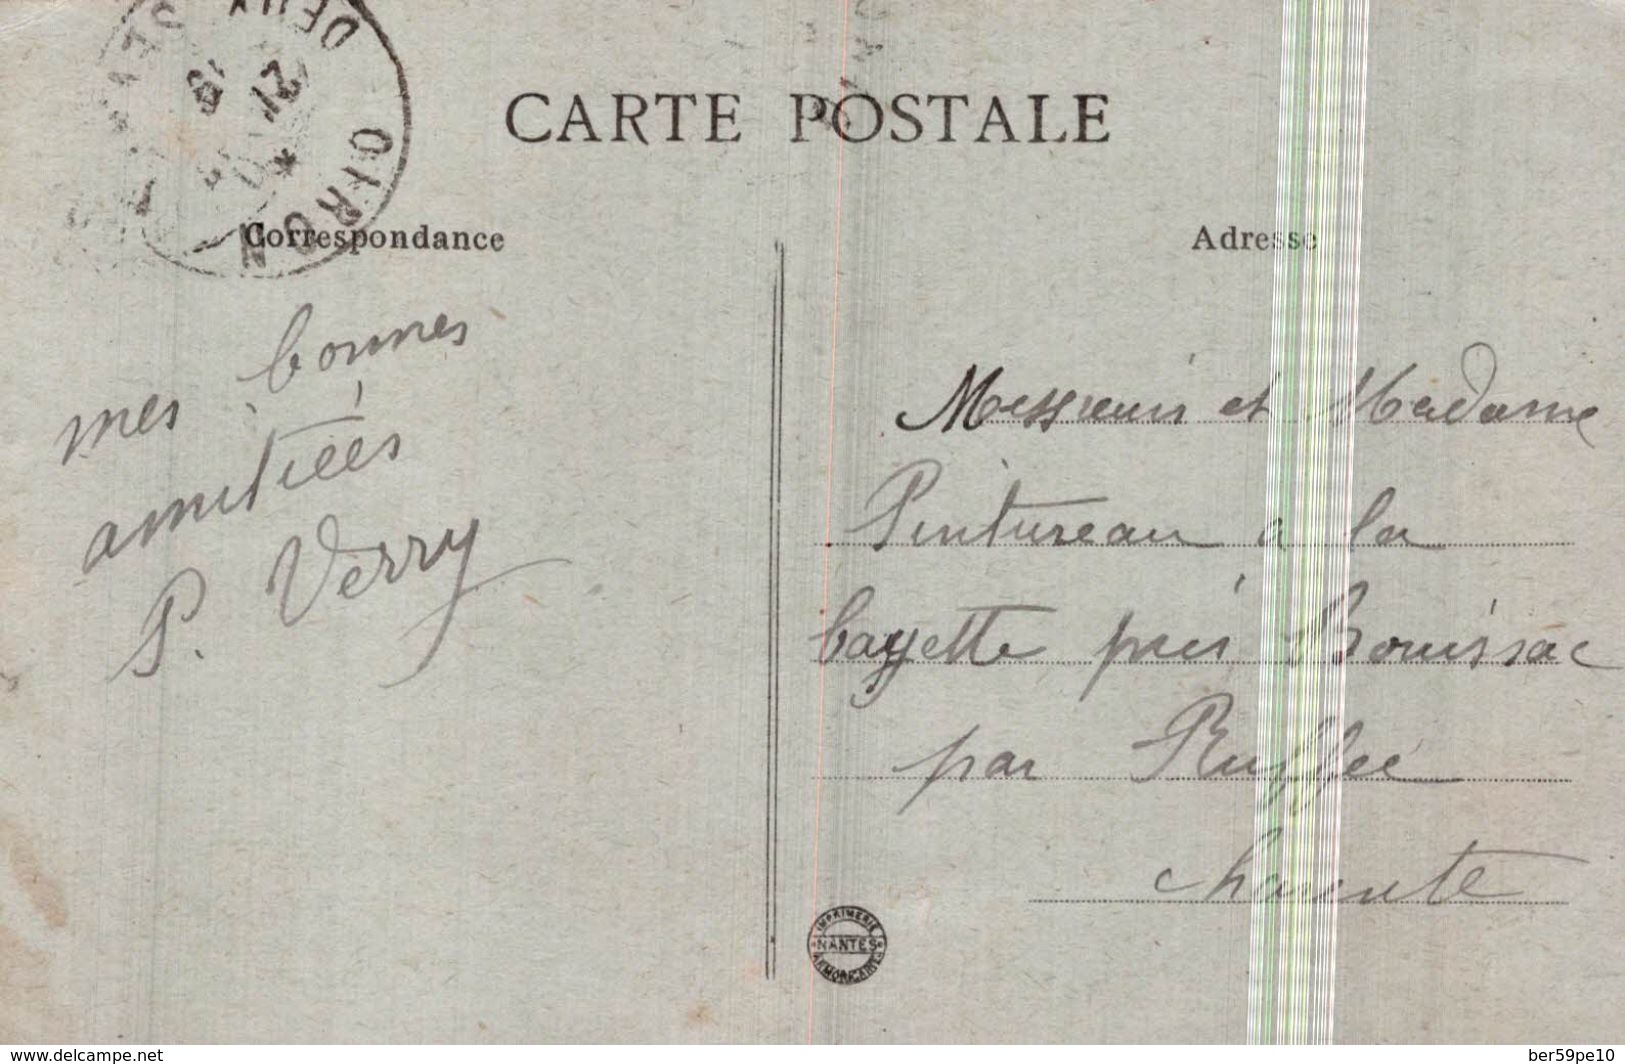 DEUX
OIRON
21
19
CARTE POSTALE
Correspondance
Adresse
mes bonnes
amitiées
P. Verry
Messieurs et Madame
Pintureau a la
bayette près Bouissac
par Ruffec
charente
IMPRIMERIE
NANTES
ARMORICAINES
www.delcampe.net
ber59pe10